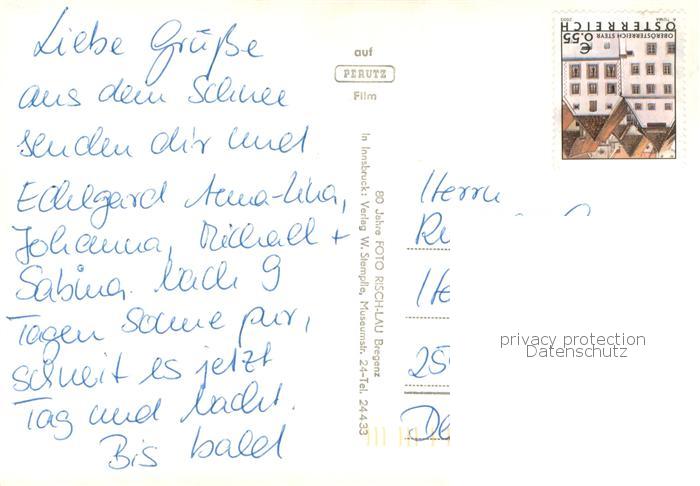 Liebe Grüße
aus dem Schnee
senden dir und
Edelgard Anna-Lina,
Johanna, Michael +
Sabina. Nach 9
Tagen Sonne pur,
schneit es jetzt
Tag und Nacht.
Bis bald
auf
PERUTZ
Film
80 Jahre FOTO RISCH-LAU Bregenz
In Innsbruck: Verlag W. Stempfle, Museumstr. 24-Tel. 24433
A. TUMA 2003
ÖSTERREICH
OBERÖSTERREICH STEYR
€ 0.55
Herrn
privacy protection
Datenschutz